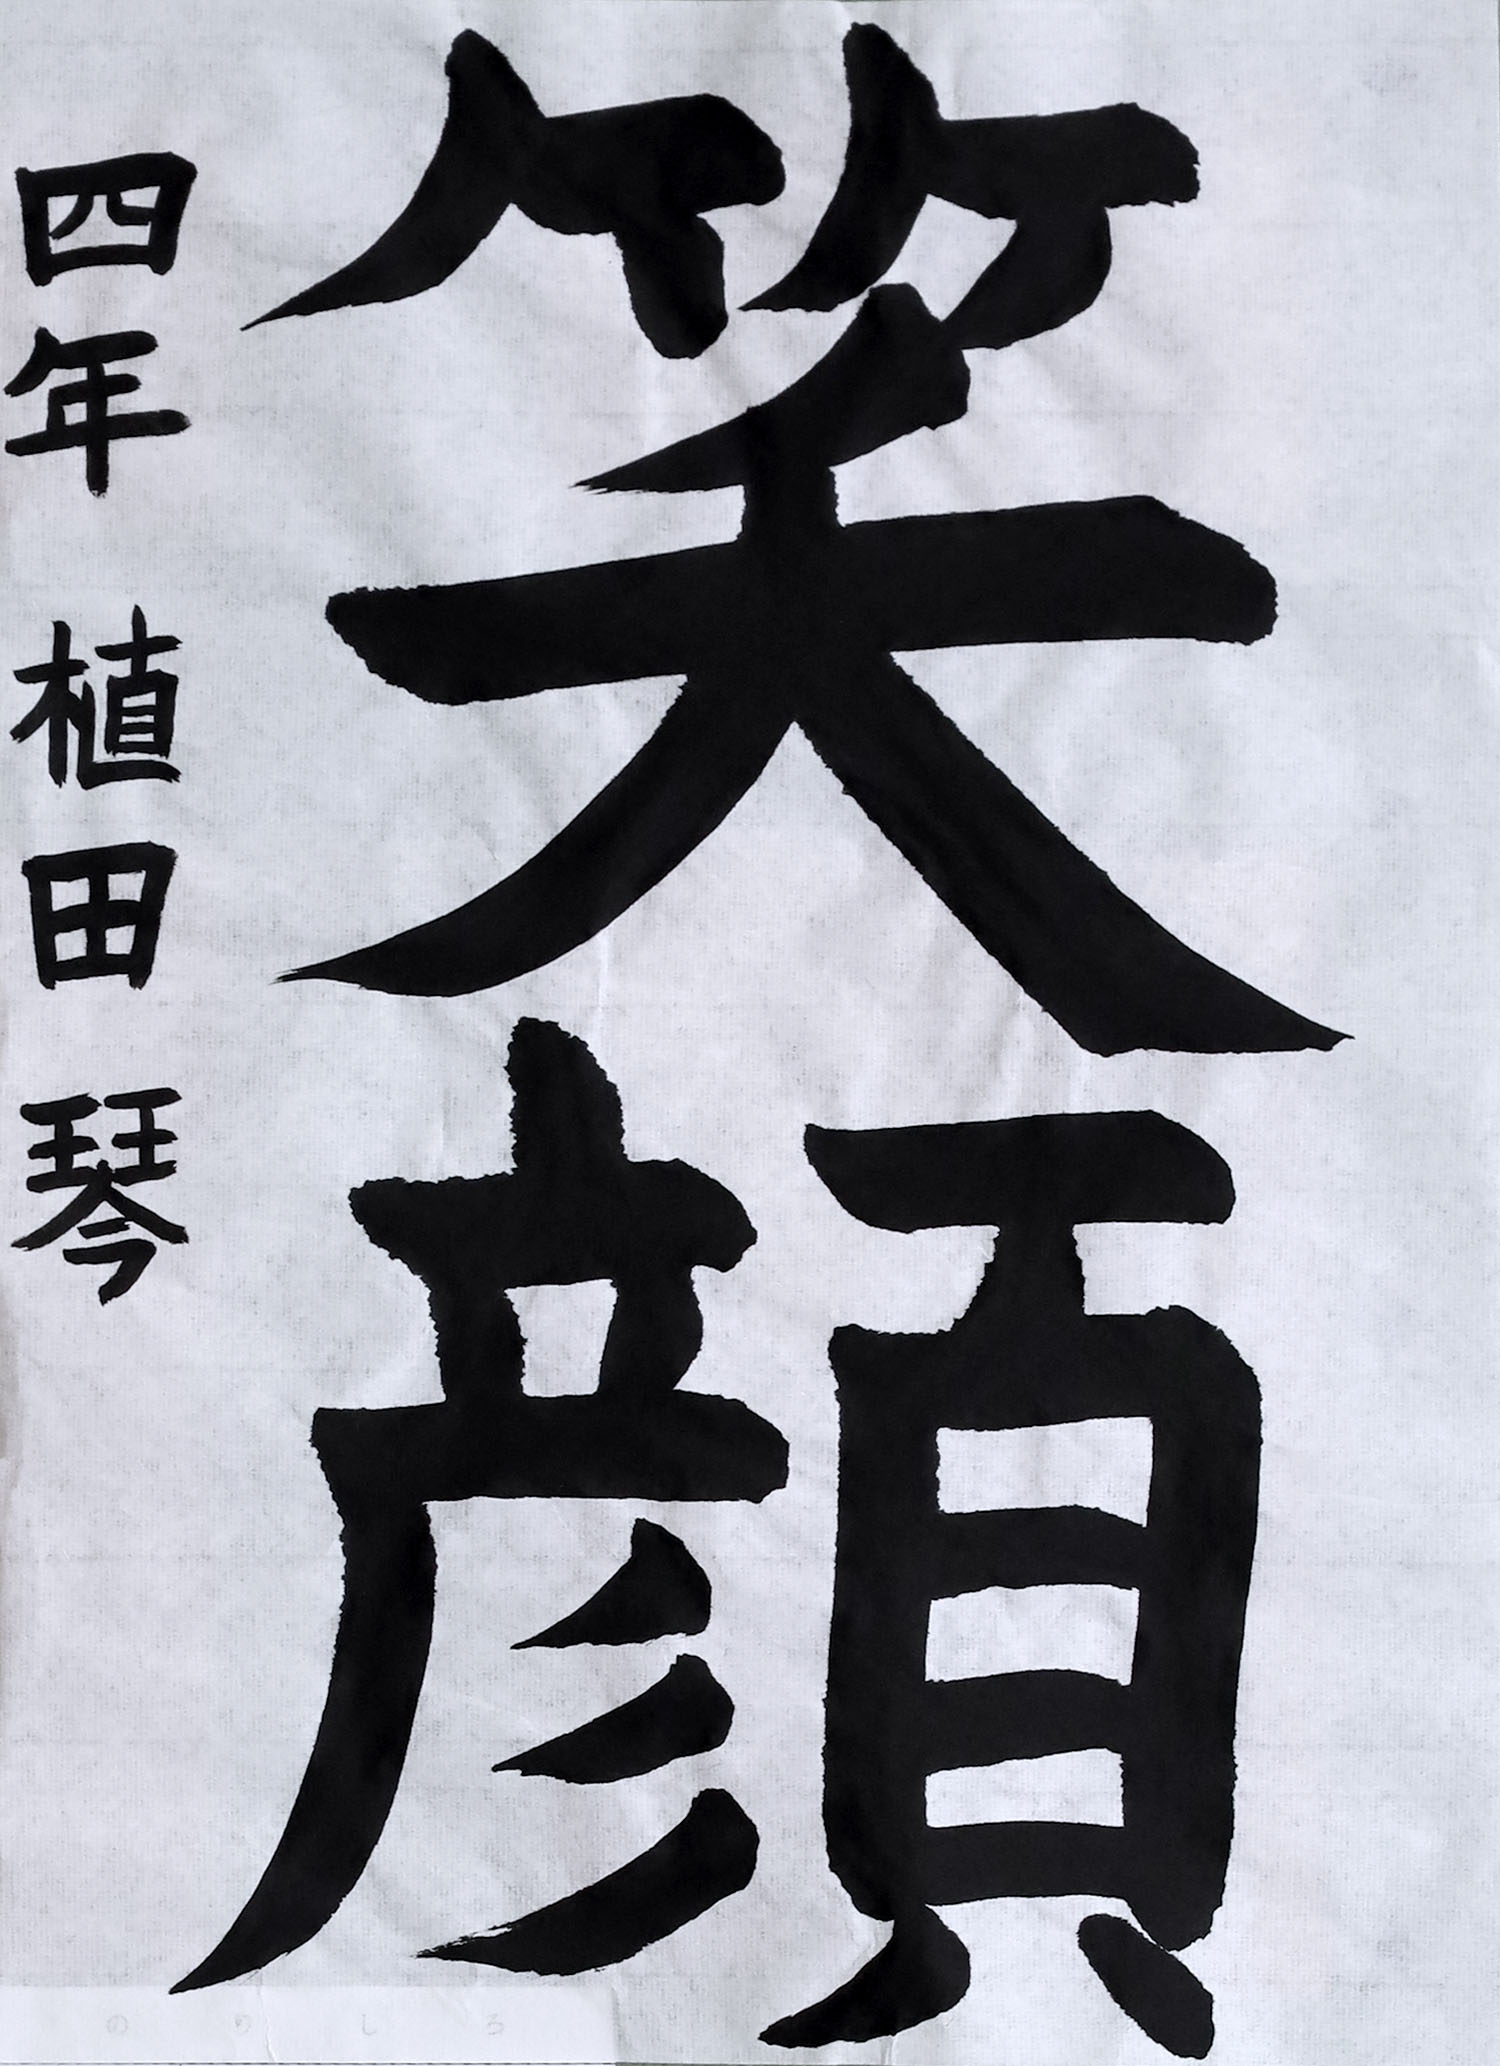 笑顔
四年 植田琴
のりしろ